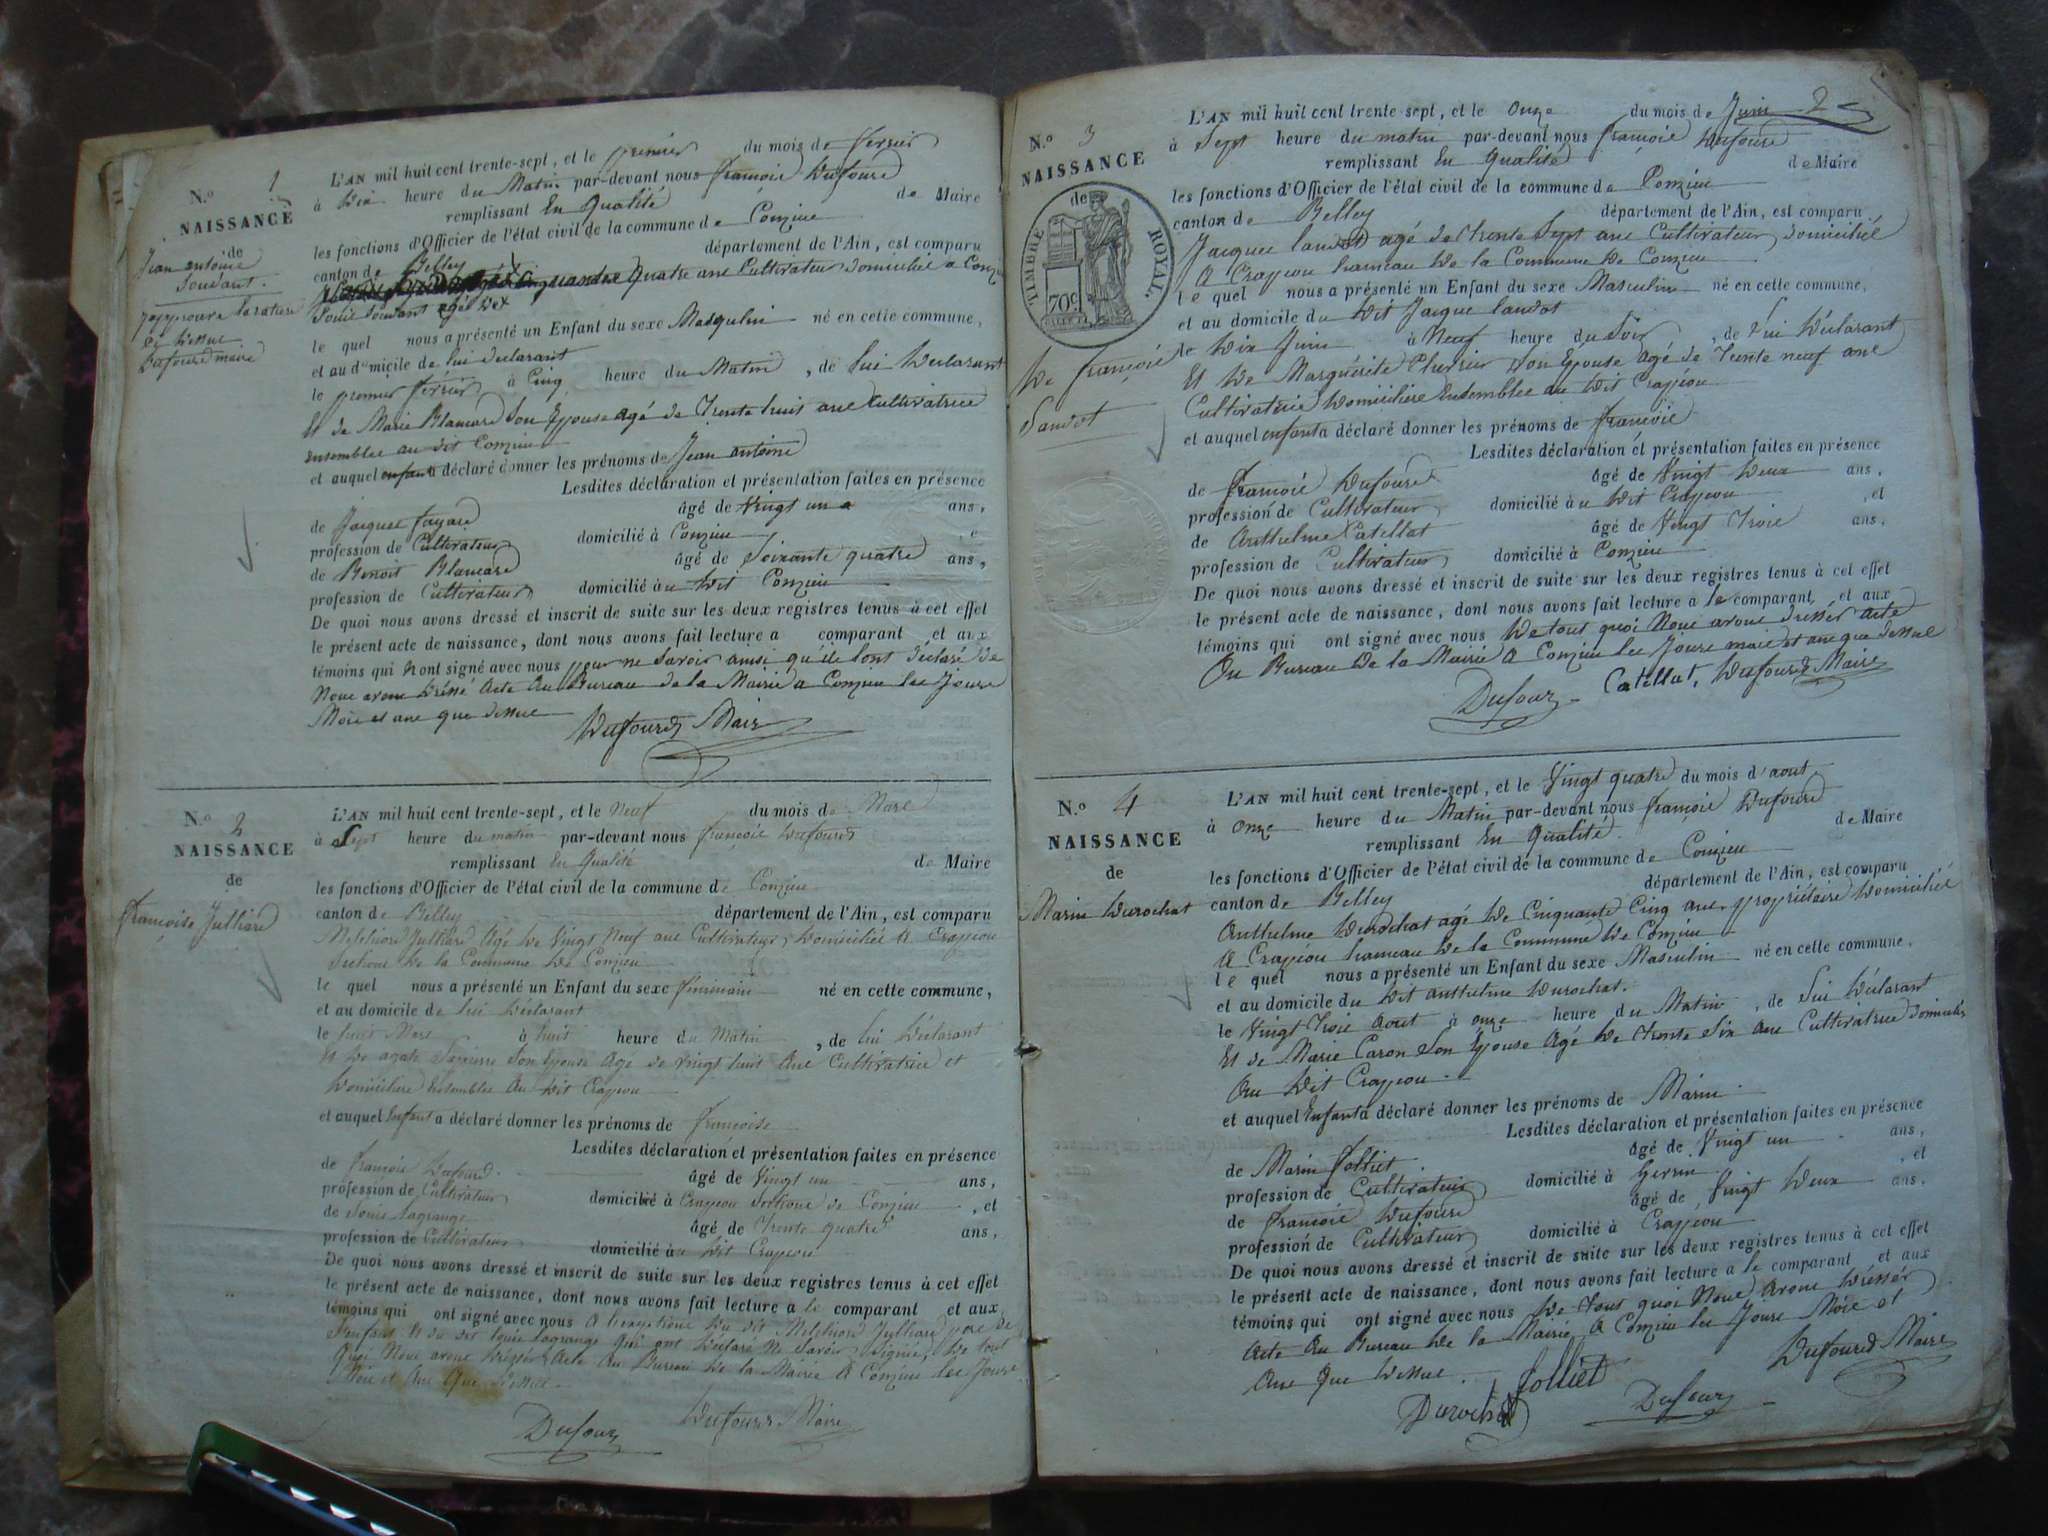 N.º 1
NAISSANCE
de
Jean antoine
Soudant.
japprouve la rature
ci dessus
Dufour maire
L'AN mil huit cent trente-sept, et le premier du mois de ferrier
à dix heure du Matin par-devant nous françois Dufour
remplissant En Qualité de Maire
les fonctions d'Officier de l'état civil de la commune de Conzieu
canton de Belley département de l'Ain, est comparu
Cinquante Quatre ans Cultivateur Domicilié a Conzieu
Louis Soudant agé de
le quel nous a présenté un Enfant du sexe Masqulin né en cette commune,
et au domicile de lui déclarant
le premier ferrier à Cinq heure du Matin, de lui Déclarant
Et de Marie Blancard Son Epouse agé de Trente huit ans Cultivatrice
ensembles au dit Conzieu
et auquel enfant a déclaré donner les prénoms de Jean antoine
Lesdites déclaration et présentation faites en présence
de Jacques fayard âgé de Vingt un ans,
profession de Cultivateur domicilié à Conzieu, e
de Benoit Blancard âgé de Soixante quatre ans,
profession de Cultivateur domicilié au Dit Conzieu
De quoi nous avons dressé et inscrit de suite sur les deux registres tenus à cet effet
le présent acte de naissance, dont nous avons fait lecture a comparant et aux
témoins qui nont signé avec nous pour ne Savoir ainsi qu'ils l'ont déclaré de
Nous avons dréssé Acte Au Bureau de la Mairie a Conzieu les Jours
Mois et ans que dessus
Dufour Maire
N.º 2
NAISSANCE
de
françoise Julliard
L'AN mil huit cent trente-sept, et le Neuf du mois de Mars
à Sept heure du matin par-devant nous françois Dufour
remplissant En Qualité de Maire
les fonctions d'Officier de l'état civil de la commune de Conzieu
canton de Belley département de l'Ain, est comparu
Melchiord Julliard Agé de Vingt Neuf ans Cultivateur, Domicilié A Crapeou
Sections de la Commune De Conzieu
le quel nous a présenté un Enfant du sexe féminain né en cette commune,
et au domicile de lui Déclarant
le huit Mars à huit heure du Matin, de lui Déclarant
Et de agate Son Epouse Agé de Vingt huit Ans Cultivatrice et
Domiciliers Ensembles Au Dit Crapeou
et auquel Enfant a déclaré donner les prénoms de françoise
Lesdites déclaration et présentation faites en présence
de françois Dufour âgé de Vingt un ans,
profession de Cultivateur domicilié à Crapeou Sections de Conzieu, et
de Louis Lagrange âgé de Trente quatre ans,
profession de Cultivateur domicilié au Dit Crapeou
De quoi nous avons dressé et inscrit de suite sur les deux registres tenus à cet effet
le présent acte de naissance, dont nous avons fait lecture a le comparant et aux
témoins qui ont signé avec nous A lexceptions Du dit Melchiord Julliard père de
l'enfant Et du dit louis lagrange Qui ont Déclaré Ne Savoir Signier, De tout
Quoi Nous avons Dréssér Acte Au Bureau De la Mairie A Conzieu les Jours
Mois et Ans Que Dessus
Dufour Dufour Maire
2
N.º 3
NAISSANCE
de
TIMBRE ROYAL.
70c.
De françois
Landot
L'AN mil huit cent trente-sept, et le Onze du mois de Juin
à Sept heure du matin par-devant nous françois Dufour
remplissant En Qualité de Maire
les fonctions d'Officier de l'état civil de la commune de Conzieu
canton de Belley département de l'Ain, est comparu
Jacques landot agé de trente Sept ans Cultivateur, Domicilié
A Crapeou hameau De la Commune De Conzieu
le quel nous a présenté un Enfant du sexe Masculin né en cette commune,
et au domicile du Dit Jacque landot
le Dix Juin à Neuf heure du Soir, de lui Déclarant
Et De Marguérite Chevrier Son Epouse Agé de Trente neuf ans
Cultivatrice Domiciliers Ensembles au Dit Crapeou
et auquel enfant a déclaré donner les prénoms de françois
Lesdites déclaration et présentation faites en présence
de françois Dufour âgé de Vingt Deux ans,
profession de Cultivateur domicilié au Dit Crapeou, et
de Anthelme Catillat âgé de Vingt Trois ans,
profession de Cultivateur domicilié à Conzieu
De quoi nous avons dressé et inscrit de suite sur les deux registres tenus à cet effet
le présent acte de naissance, dont nous avons fait lecture a le comparant et aux
témoins qui ont signé avec nous De tout quoi Nous avons dréssér Acte
Au Bureau De la Mairie A Conzieu les Jours mois et ans que dessus
Dufour Catillat, Dufour Maire
N.º 4
NAISSANCE
de
Marin Durochat
L'AN mil huit cent trente-sept, et le Vingt quatre du mois d'aout
à Onze heure du Matin par-devant nous françois Dufour
remplissant En Qualité de Maire
les fonctions d'Officier de l'état civil de la commune de Conzieu
canton de Belley département de l'Ain, est comparu
Anthelme Durochat agé De Cinquante Cinq ans, propriétaire Domicilié
A Crapeou hameau De la Commune De Conzieu
le quel nous a présenté un Enfant du sexe Masculin né en cette commune,
et au domicile du Dit anthelme Durochat.
le Vingt Trois Aout à onze heure du Matin, de lui Déclarant
Et de Marie Caron Son Epouse Agé De Trente Six Ans Cultivatrice Domiciliés
Au Dit Crapeou
et auquel Enfant a déclaré donner les prénoms de Marin
Lesdites déclaration et présentation faites en présence
de Marin Jolliet âgé de Vingt un ans,
profession de Cultivateur domicilié à, et
de françois Dufour âgé de Vingt Deux ans,
profession de Cultivateur domicilié à Crapeou
De quoi nous avons dressé et inscrit de suite sur les deux registres tenus à cet effet
le présent acte de naissance, dont nous avons fait lecture a le comparant et aux
témoins qui ont signé avec nous De Tous quoi Nous Avons Dréssér
Acte Au Bureau De la Mairie A Conzieu les Jours Mois et
Ans Que Dessus.
Durochat Jolliet Dufour Dufour Maire